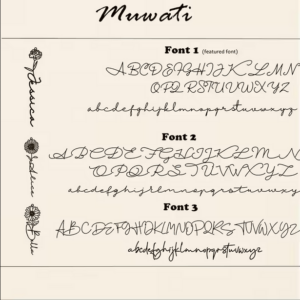 Muwati
Font 1 (featured font)
ABCDEFGHIJKLMN
OPQRSTUVWXYZ
abcdefghijklmnopqrstuvwxy
Font 2
ABCDEFGHIJKLMN
OPQRSTUVWXYZ
abcdefghijklmnopqrstuvwxy
Font 3
ABCDEFGHIJKLMNOPQRSTUVWXYZ
abcdefghijklmnopqrstuvwxyz
Jessica